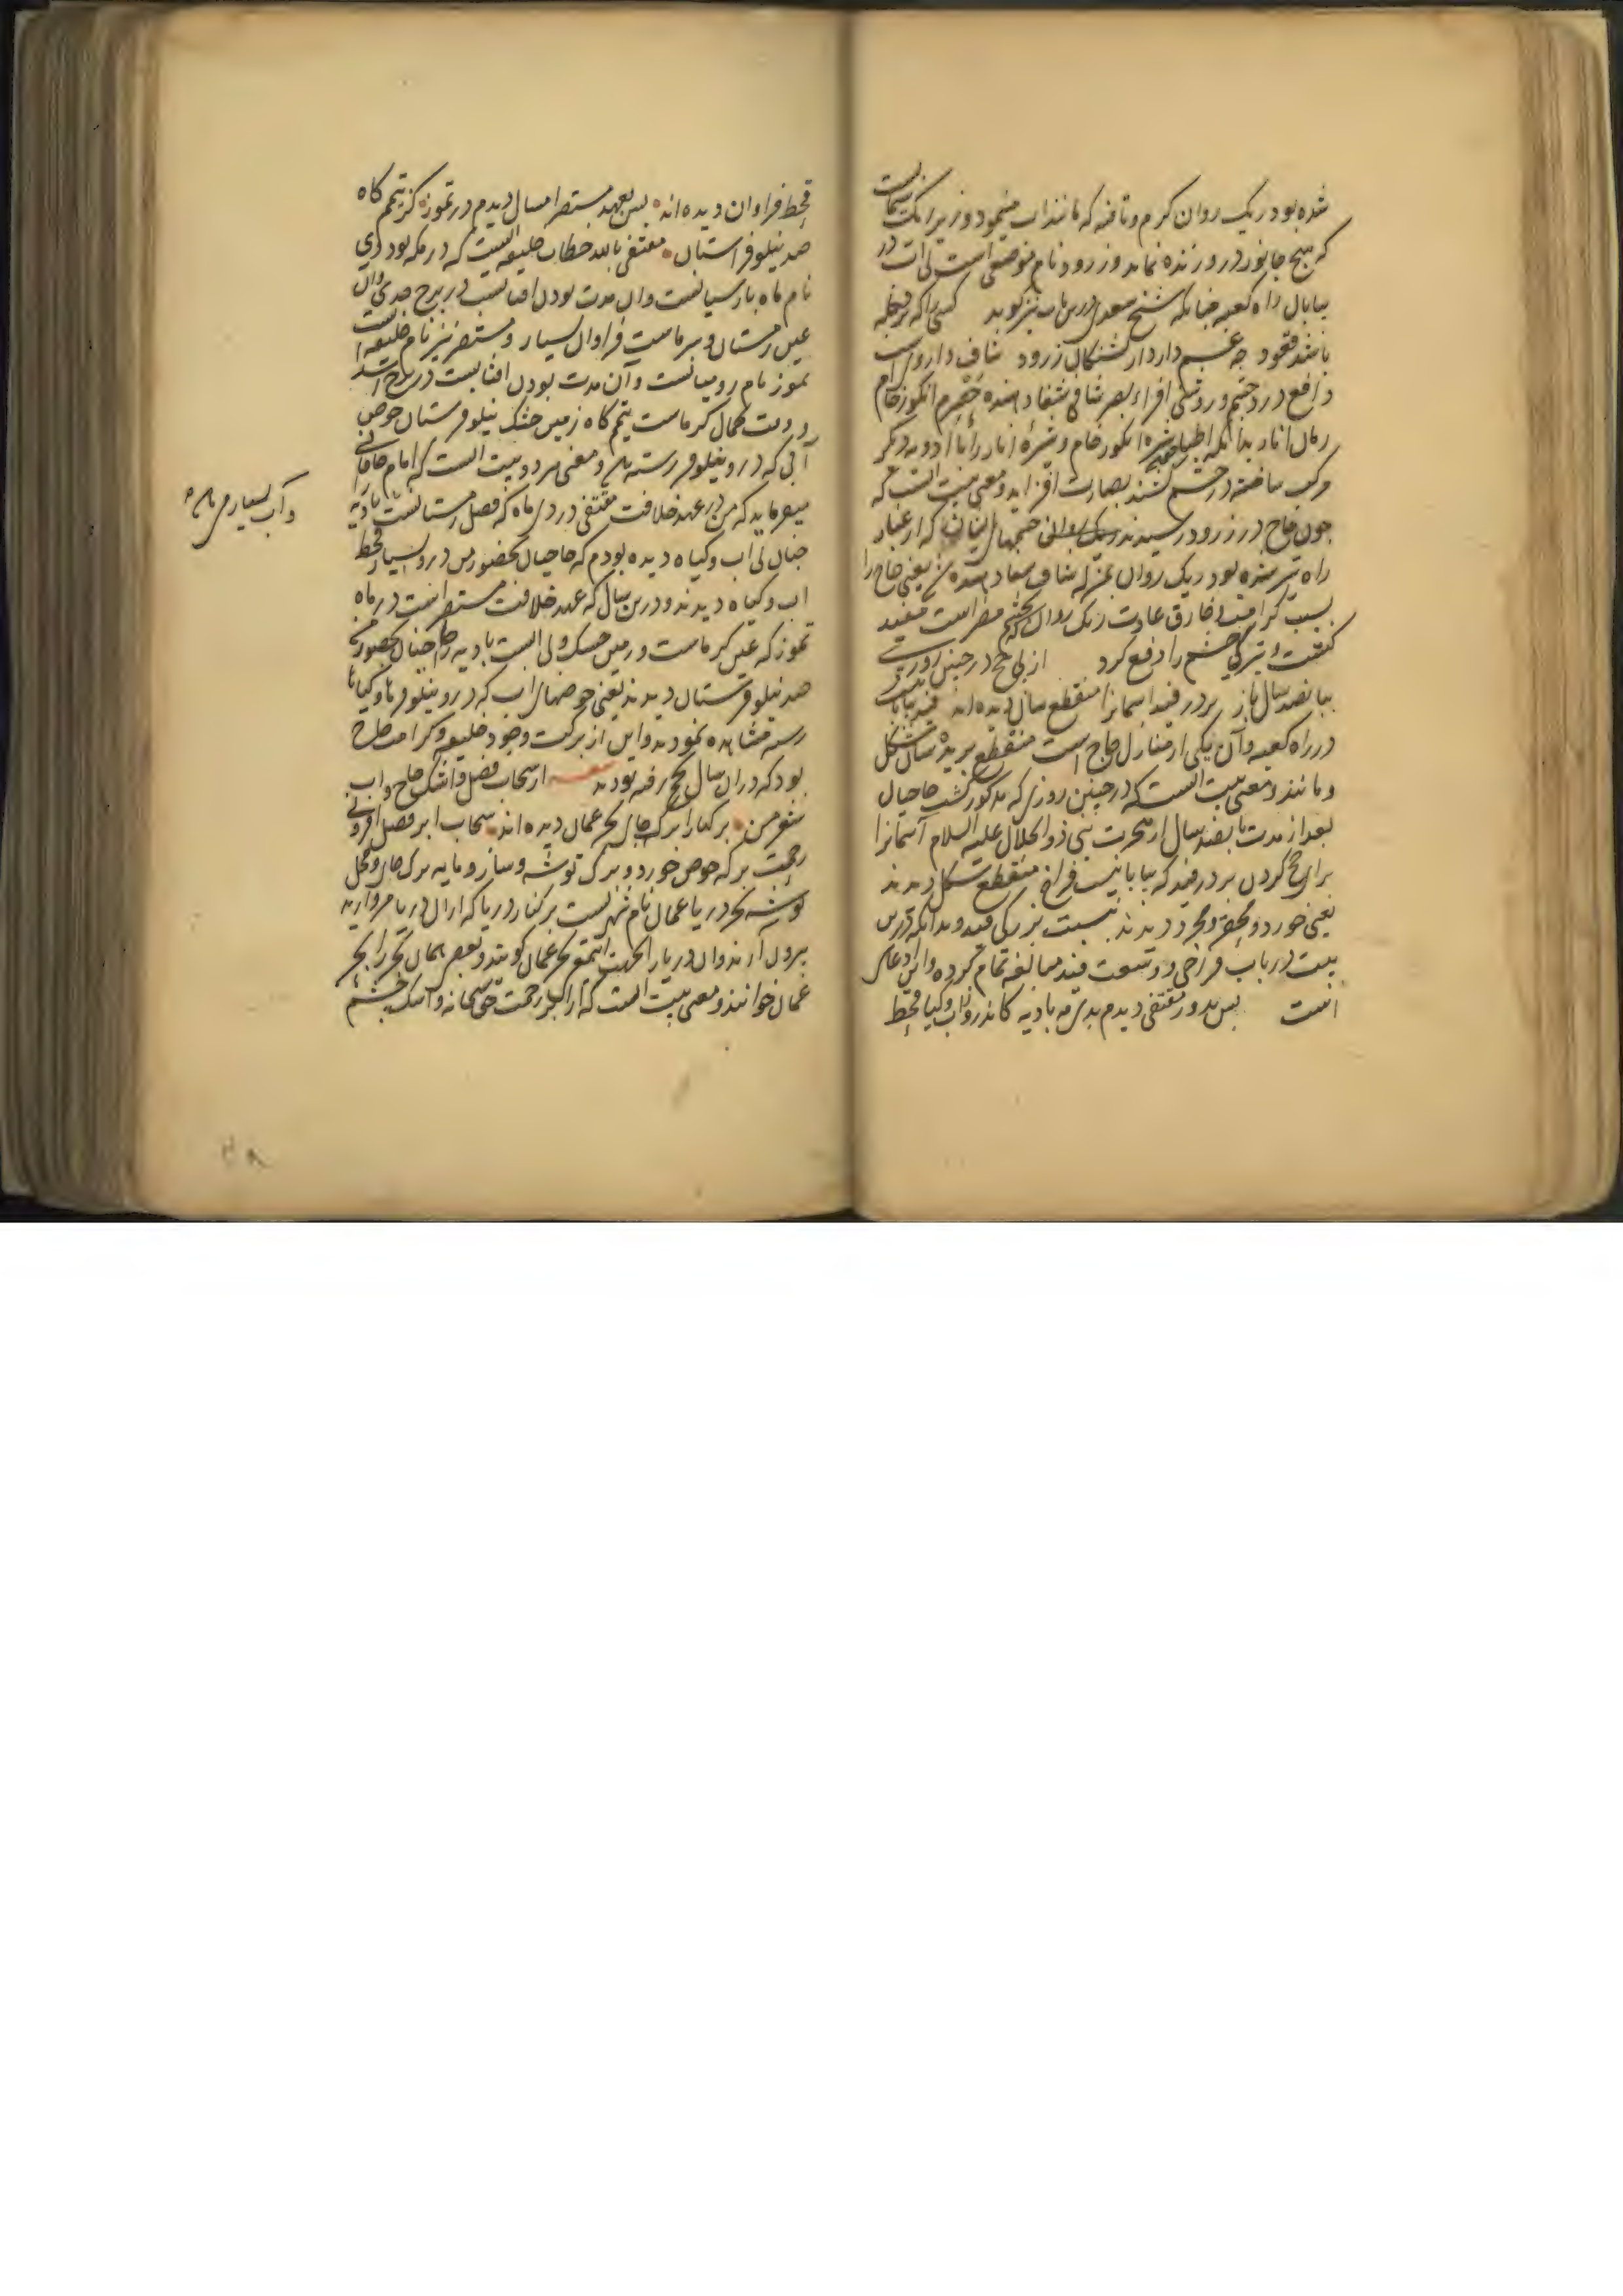 شده بود ریک روان کرم و تافته که مانند آب مینمود و زیر ریک
که هیچ جانور درو زنده نماند و زرود نام موضعی است بی آب در
بیابان راه کعبه چنانکه شیخ سعدی درین باب نیز کوید کسی را که
باشد جه غم دارد از تشنکان زرود شاف داروی است
دافع درد چشم و روشنی افزاء بصر شافی شفا دهنده حصرم انکور خام
رمان انار بدانکه اطبا شیره انکور خام و شیره انار را با ادویه دیکر
مرکب ساخته در چشم کشند بصارت افزاید و معنی بیت آنست که
چون حاج در زرود رسیدند چشمهای ایشان که از غبار
راه تیره شده بود ریک روان بمنزله شاف شفا دهنده یعنی حاج را
بسبب کرامت و خارق عادت ریک روان که بچشم مضر است مفید
کشت و تیرکی چشم را دفع کرد از پی حج در چنین روزی
بپانصد سال باز بر در فید آسمانرا منقطع سان دیده اند فید
در راه کعبه و آن یکی از منازل حاج است منقطع بریده سان شکل
و مانند و معنی بیت آنست که در چنین روزی که مذکور کشت حاجیان
بعد از مدت پانصد سال از هجرت نبی ذوالجلال علیه السلام آسمانرا
برای حج کردن بر در فید که بیابانیست فراخ منقطع شکل دیدند
یعنی خورد و محقر دیدند نسبت بزرکی فید و بدانکه درین
بیت در باب فراخی و وسعت فید مبالغه تمام کرده و این ادعای
است پس بدور مقتفی دیدم بدی مه بادیه کاندرو ز آب و کیا قحط
قحط فراوان دیده اند پس بعهد مستضی امسال دیدم در تموز کز تیمم کاه
صد نیلوفرستان مقتفی بالله خطاب خلیفه ایست که در مکه بود دی
نام ماه پارسیانست و آن مدت بودن آفتابست در برج جدی و آن
عین زمستان و سرماست فراوان بسیار و مستضی نیز نام خلیفه است
تموز نام رومیانست و آن مدت بودن آفتابست در برج اسد
و وقت کمال کرماست تیمم کاه زمین خشک نیلوفرستان حوض
آبی که درو نیلوفر رسته باشد و معنی هر دو بیت آنست که امام خاقانی
میفرماید که من در عهد خلافت مقتفی در دی ماه که فصل زمستانست بادیه
چنان بی آب و کیاه دیده بودم که حاجیان بحضور من درو بسیار قحط
آب و کیاه دیدند و درین سال که عهد خلافت مستضی است در ماه
تموز که عین کرماست و زمین خشک و بی آبست بادیه را چنان بحضور من
صد نیلوفرستان دیدند یعنی حوضهای آب که درو نیلوفرها و کیاها
رسته مشاهده نمودند و این از برکت وجود خلیفه و کرامت حاج
بود که در آن سال بحج رفته بودند از سحاب فضل و اشک حاج و آب
شعر من برکها را برک جای بحر عمان دیده اند سحاب ابر فضل افزونی
رحمت برکه حوض خورد و برک توشه و ساز و مایه
توشه بحر دریا عمان نام شهریست بر کنار دریا که از آن دریا مروارید
بیرون آرند و آن دریا را بحر عمان کویند و بعضی همان بحر را بحر
عمان خوانند و معنی بیت آنست که از ابر رحمت حق سبحانه و اشک چشم
و آب بسیار می باشد
۴۸